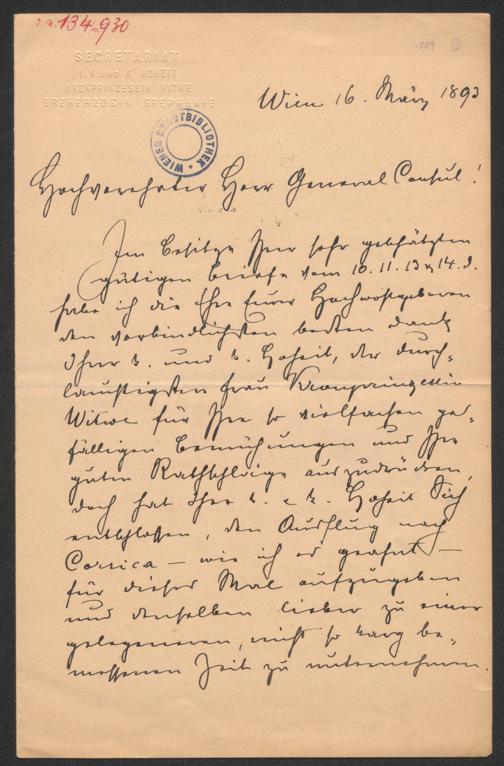 J.N. 134.930
109
SECRETARIAT
I. K. UND K. HOHEIT
KRONPRINZESSIN WITWE
ERZHERZOGIN STEPHANIE
Wien 16. März 1893
WIENER STADTBIBLIOTHEK
Hochverehrter Herr General Consul!
Im Besitze Ihrer sehr geschätzten
gütigen Briefe vom 10. 11. 13 & 14. d.
habe ich die Ehre Eurer Hochwohlgeboren
den verbindlichsten besten Dank
Ihrer k. und k. Hoheit, der durch-
lauchtigsten Frau Kronprinzessin
Witwe für Ihre so vielfachen ge-
fälligen Bemühungen und Ihre
guten Rathschläge auszudrücken,
doch hat Ihre k. u. k. Hoheit Sich
entschlossen, den Ausflug nach
Corsica – wie ich es geahnt –
für dieses Mal aufzugeben
und denselben lieber zu einer
gelegeneren, nicht so karg be-
messenen Zeit zu unternehmen.